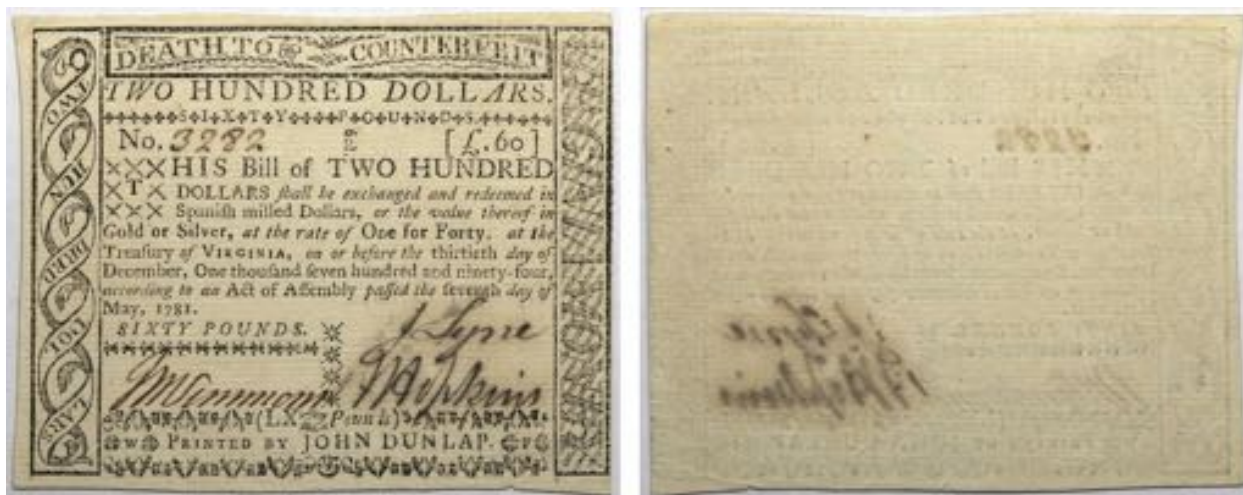 DEATH TO COUNTERFEIT
TWO HUNDRED DOLLARS.
S✤I✤X✤T✤Y✤P✤O✤U✤N✤D✤S
No. 3282 [£.60]
THIS Bill of TWO HUNDRED
DOLLARS ſhall be exchanged and redeemed in
Spaniſh milled Dollars, or the value thereof in
Gold or Silver, at the rate of One for Forty, at the
Treaſury of VIRGINIA, on or before the thirtieth day of
December, One thouſand ſeven hundred and ninety-four,
according to an Act of Aſſembly paſſed the ſeventh day of
May, 1781.
SIXTY POUNDS.
J Lyne
Hopkins
(LX Pounds)
PRINTED BY JOHN DUNLAP.
TWO HUN DRED DOL LARS
3282
J Lyne
Hopkins